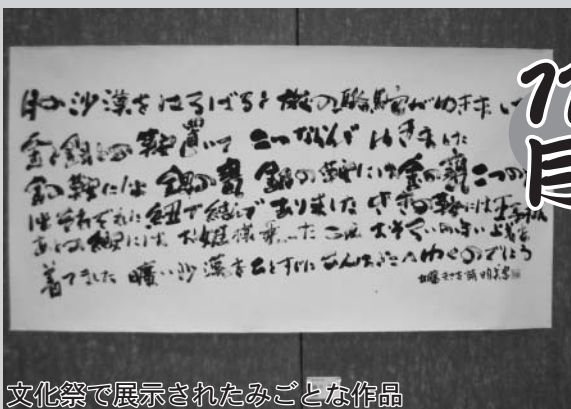 月の沙漠をはるばると旅の駱駝がゆきま
金と銀との鞍置いて二つならんでゆきました
金の鞍には銀の甕 銀の鞍には金の甕 二つの
はそれぞれに紐で結んでありました さきの鞍には王子様
あとの鞍にはお姫様乗った二人おそろいの白い上着を
着てました 曠い沙漠をひとすじに二人はどこへゆくのでしょう
加藤まさを詞 明美書
文化祭で展示されたみごとな作品